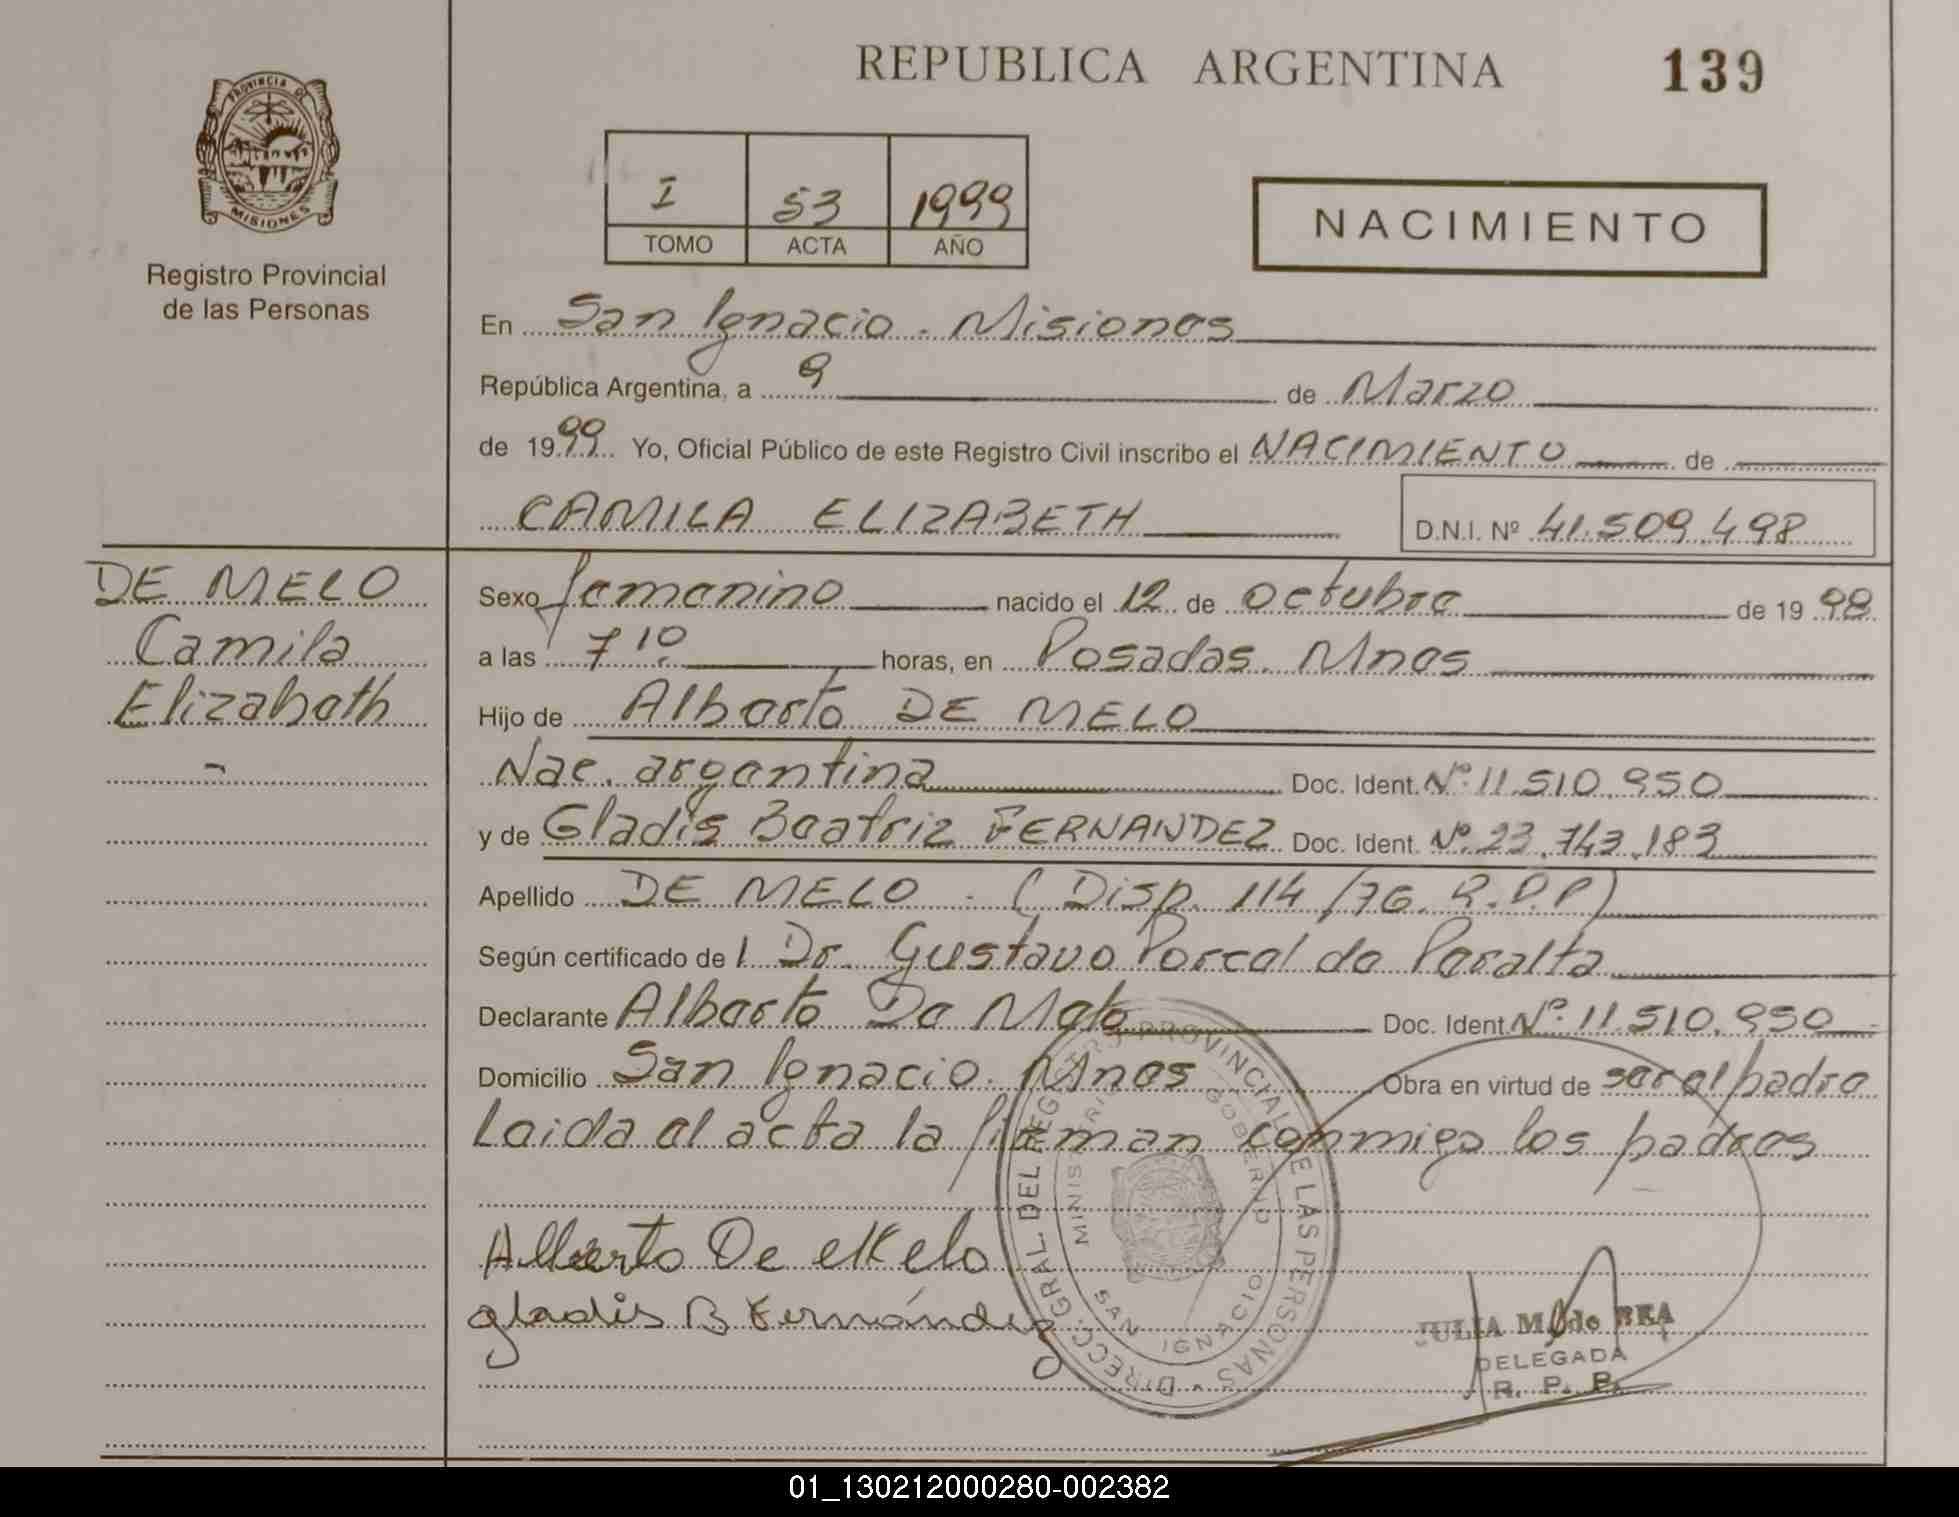 REPUBLICA ARGENTINA 139
PROVINCIA DE
MISIONES
Registro Provincial
de las Personas
I 53 1999
TOMO ACTA AÑO
NACIMIENTO
En San Ignacio. Misiones
República Argentina, a 9 de Marzo
de 1999 Yo, Oficial Público de este Registro Civil inscribo el NACIMIENTO de
CAMILA ELIZABETH D.N.I. Nº 41.509.498
DE MELO
Camila
Elizabeth
Sexo femenino nacido el 12 de octubre de 1998
a las 7 10 horas, en Posadas. Mnes
Hijo de Alberto DE MELO
Nac. argentina Doc. Ident. Nº 11.510.950
y de Gladis Beatriz FERNANDEZ Doc. Ident. Nº 23.743.183
Apellido DE MELO. (Disp. 114/76. R.P.P)
Según certificado de l Dr. Gustavo Porcel de Peralta
Declarante Alberto De Melo Doc. Ident. Nº 11.510.950
Domicilio San Ignacio. Mnes Obra en virtud de ser el padre
Leida el acta la firman conmigo los padres
Alberto De Melo
gladis B Fernández
DIRECC. GRAL. DEL REGISTRO PROVINCIAL DE LAS PERSONAS
MINISTERIO GOBIERNO
SAN IGNACIO
JULIA M. de BEA
DELEGADA
R. P. P.
01_130212000280-002382